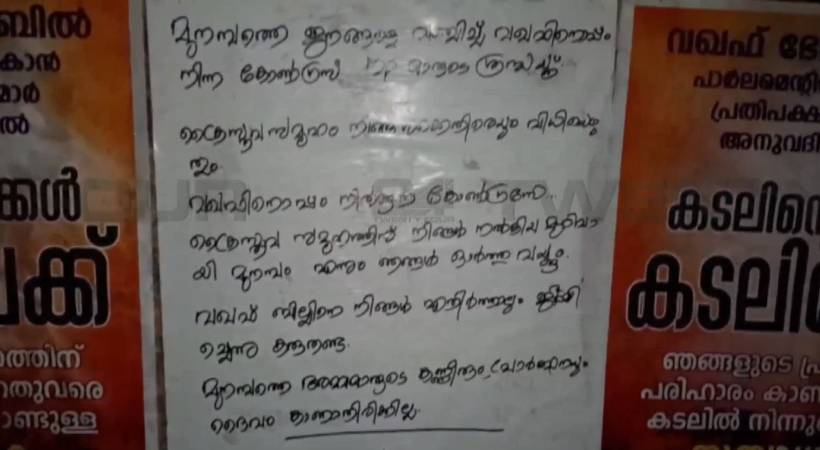 ബിൽ
കാൻ
മാർ
ൽ
ക്കൾ
പക്ക്
ത്തിന്
തുവരെ
ാണ്ടുള്ള
മുനമ്പത്തെ ജനങ്ങളെ വഞ്ചിച്ച് വഖഫിനൊപ്പം
നിന്ന കോൺഗ്രസ് എം പി മാരുടെ ശ്രദ്ധയ്ക്ക്.
ക്രൈസ്തവ സമൂഹം വിധിയെഴു
തും
വഖഫിനൊപ്പം നിൽക്കുന്ന കോൺഗ്രസേ..
ക്രൈസ്തവ സമൂഹത്തിന് നിങ്ങൾ നൽകിയ മുറിവാ
യി മുനമ്പം എന്നും ഞങ്ങൾ ഓർത്തു വയ്ക്കും.
വഖഫ് ബില്ലിനെ നിങ്ങൾ എതിർത്താലും ജയി
ച്ചെന്നു കരുതണ്ട.
മുനമ്പത്തെ അമ്മമാരുടെ കണ്ണീരും, പ്രാർത്ഥനയും
ദൈവം കാണാതിരിക്കില്ല.
വഖഫ് ഭേ
പാർലമെന്റി
പ്രതിപക്ഷ
അനുവദി
കടലിനെ
കടലി
ഞങ്ങളുടെ പ്ര
പരിഹാരം കാണ
കടലിൽ നിന്നു
TWENTY FOUR